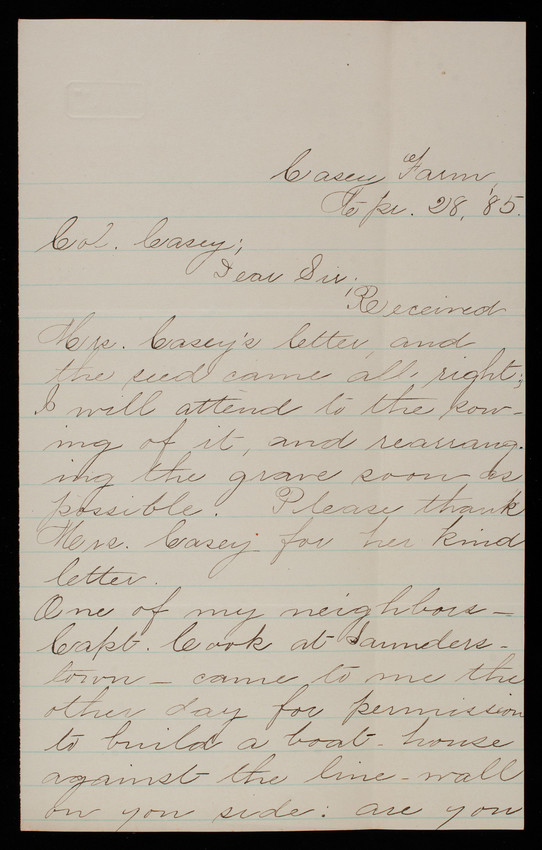 Casey Farm,
Apr. 28, '85.
Col. Casey;
Dear Sir.
Received
Mrs. Casey's letter, and
the seed came all right;
I will attend to the sow-
ing of it, and rearrang-
ing the grave soon as
possible. Please thank
Mrs. Casey for her kind
letter.
One of my neighbors -
Capt. Cook at Saunders-
town - came to me the
other day for permission
to build a boat-house
against the line-wall
on you side: are you